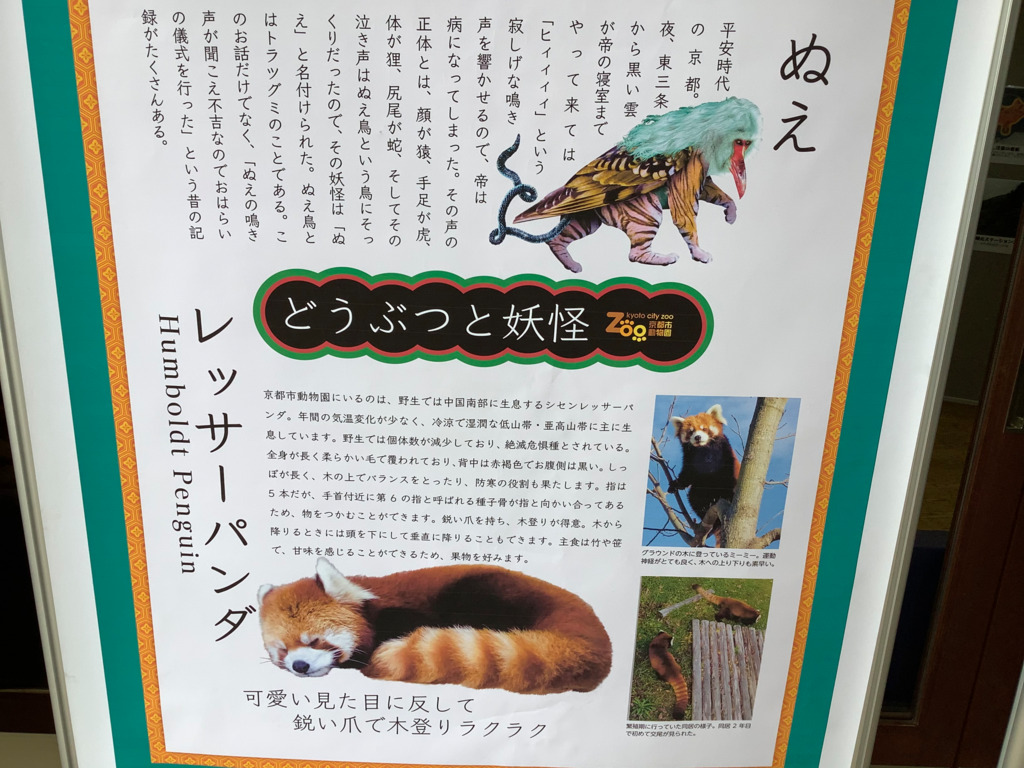 ぬえ
平安時代
の京都。
夜、東三条
から黒い雲
が帝の寝室まで
やって来ては
「ヒィィィィ」という
寂しげな鳴き
声を響かせるので、帝は
病になってしまった。その声の
正体とは、顔が猿、手足が虎、
体が狸、尻尾が蛇、そしてその
泣き声はぬえ鳥という鳥にそっ
くりだったので、その妖怪は「ぬ
え」と名付けられた。ぬえ鳥と
はトラツグミのことである。こ
のお話だけでなく、「ぬえの鳴き
声が聞こえ不吉なのでおはらい
の儀式を行った」という昔の記
録がたくさんある。
どうぶつと妖怪
kyoto city zoo
ZOO
京都市
動物園
レッサーパンダ
Humboldt Penguin
京都市動物園にいるのは、野生では中国南部に生息するシセンレッサーパ
ンダ。年間の気温変化が少なく、冷涼で湿潤な低山帯・亜高山帯に主に生
息しています。野生では個体数が減少しており、絶滅危惧種とされている。
全身が長く柔らかい毛で覆われており、背中は赤褐色でお腹側は黒い。しっ
ぽが長く、木の上でバランスをとったり、防寒の役割も果たします。指は
5本だが、手首付近に第6の指と呼ばれる種子骨が指と向かい合ってある
ため、物をつかむことができます。鋭い爪を持ち、木登りが得意。木から
降りるときには頭を下にして垂直に降りることもできます。主食は竹や笹
で、甘味を感じることができるため、果物を好みます。
グラウンドの木に登っているミーミー。運動
神経がとても良く、木への上り下りも素早い。
繁殖期に行っていた同居の様子。同居2年目
で初めて交尾が見られた。
可愛い見た目に反して
鋭い爪で木登りラクラク